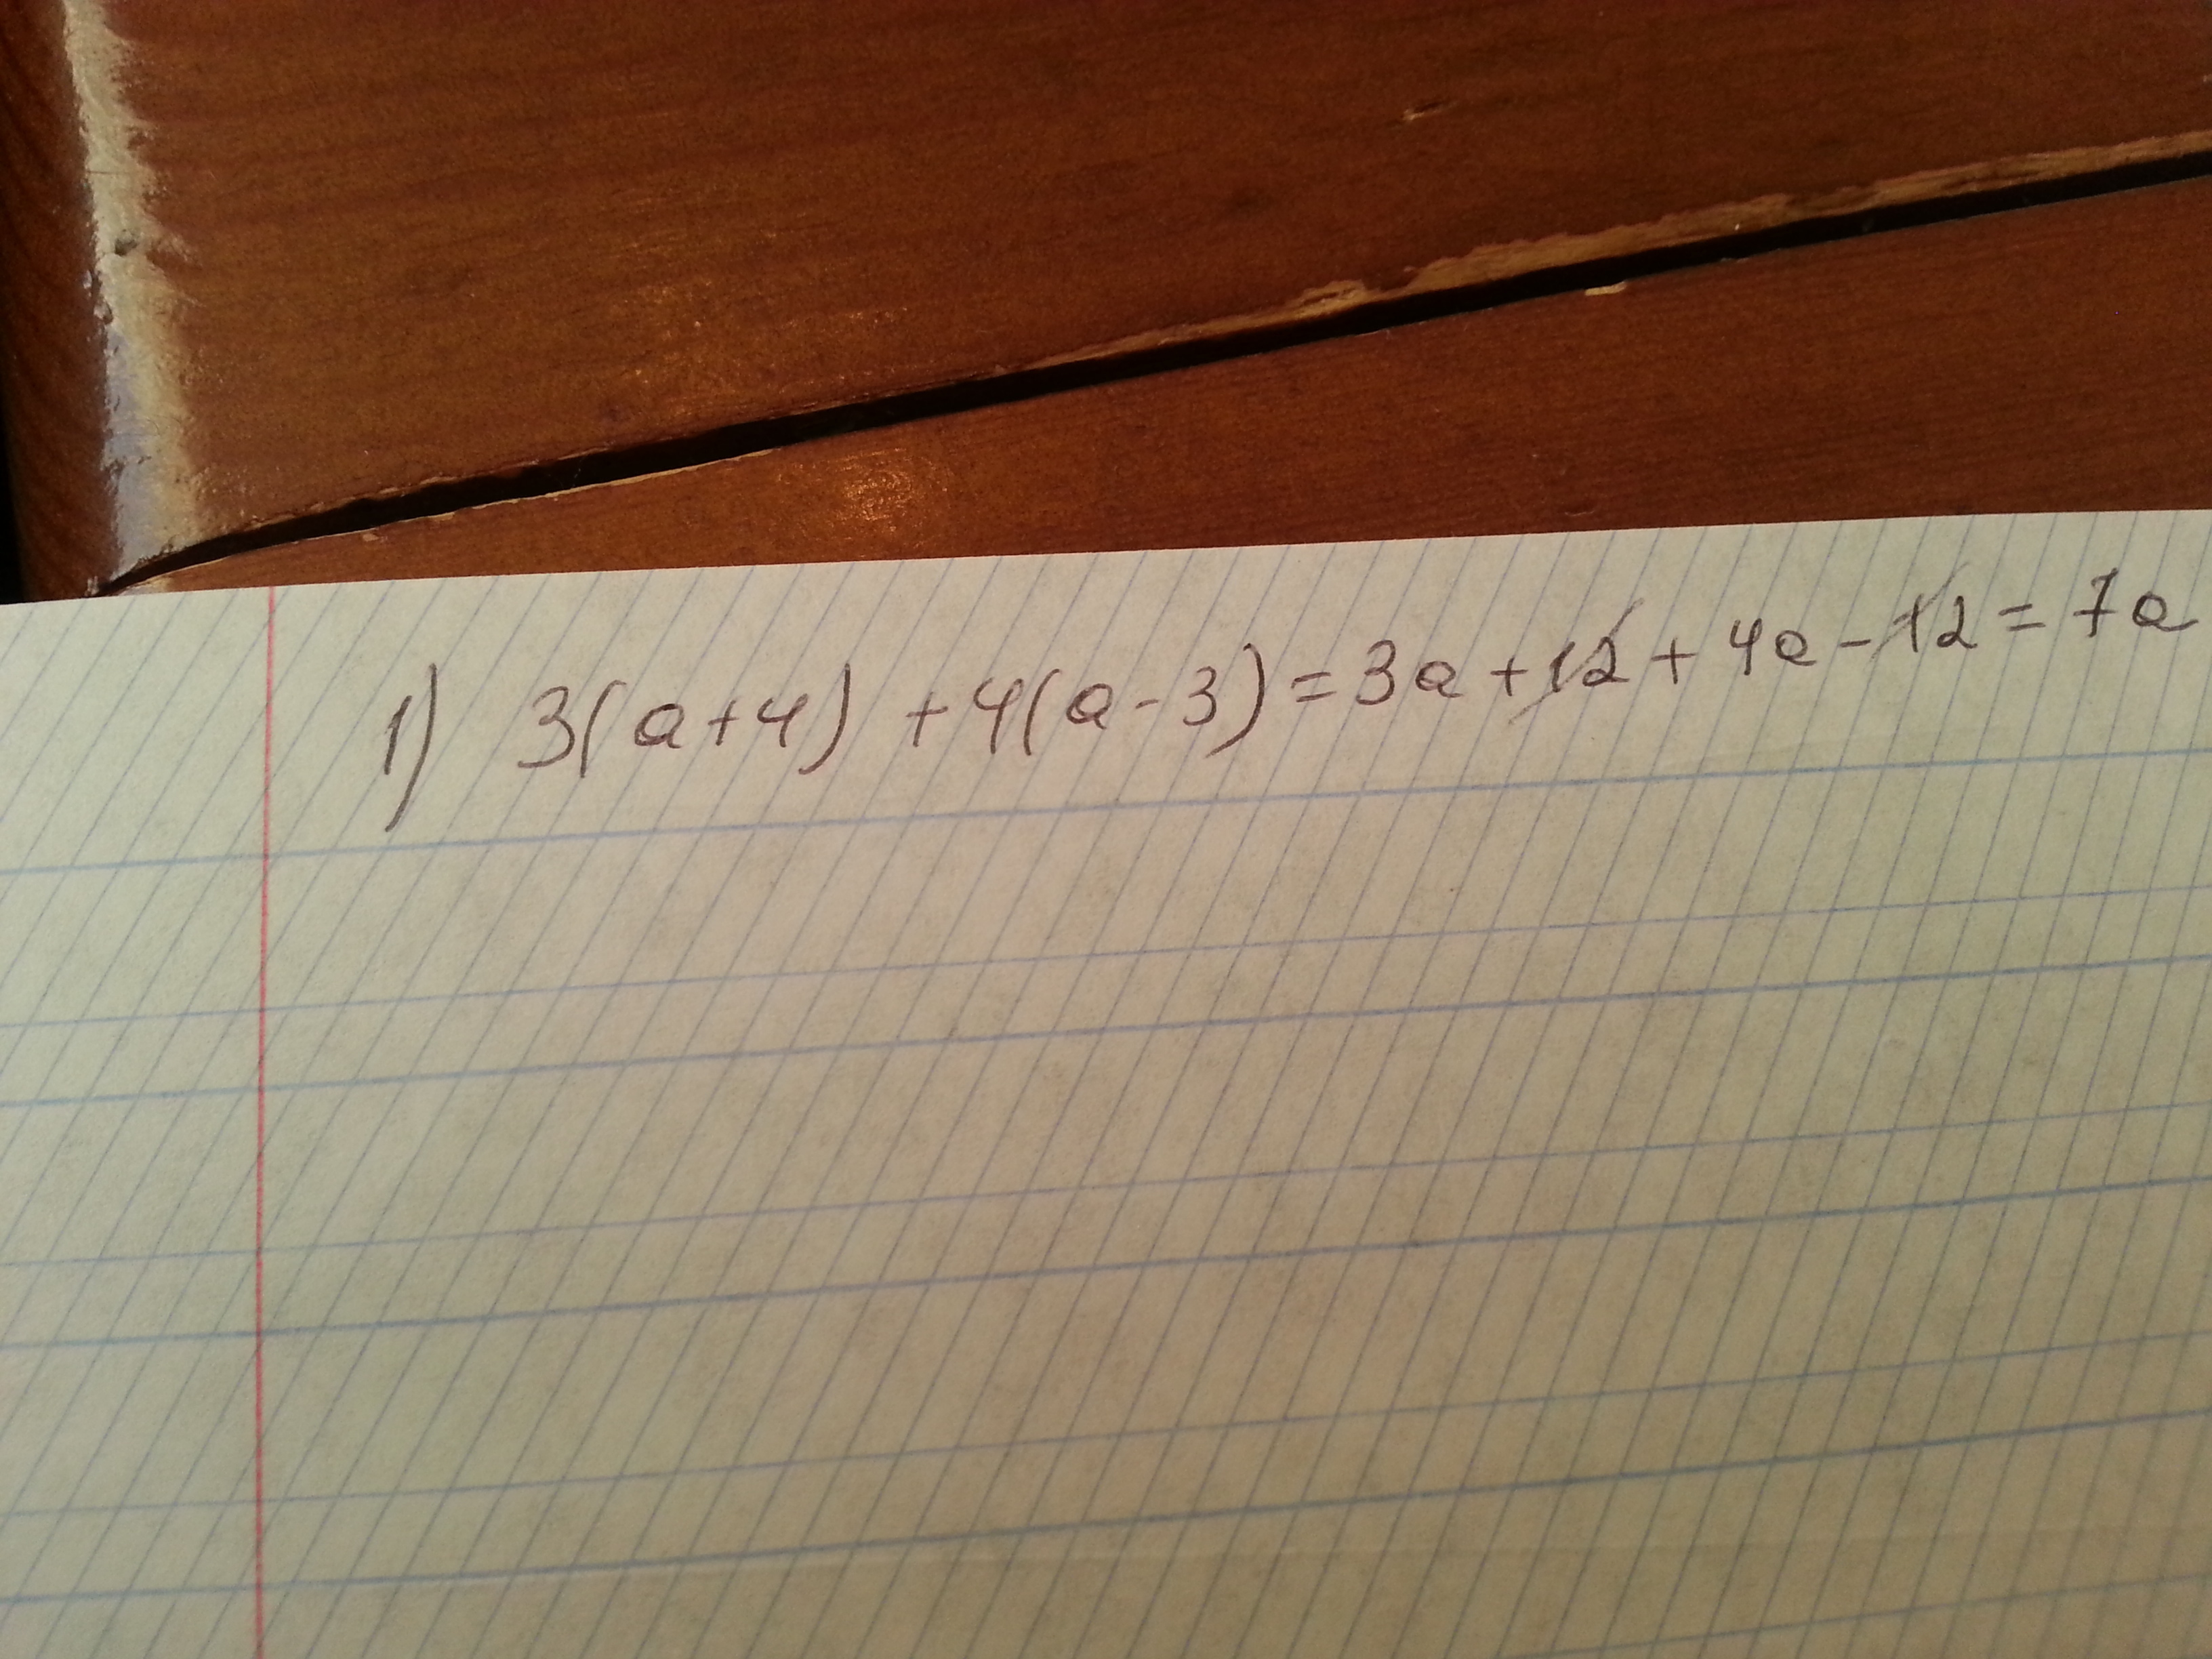 1) 3(a+4) +4(a-3)=3a+12+4a-12=7a